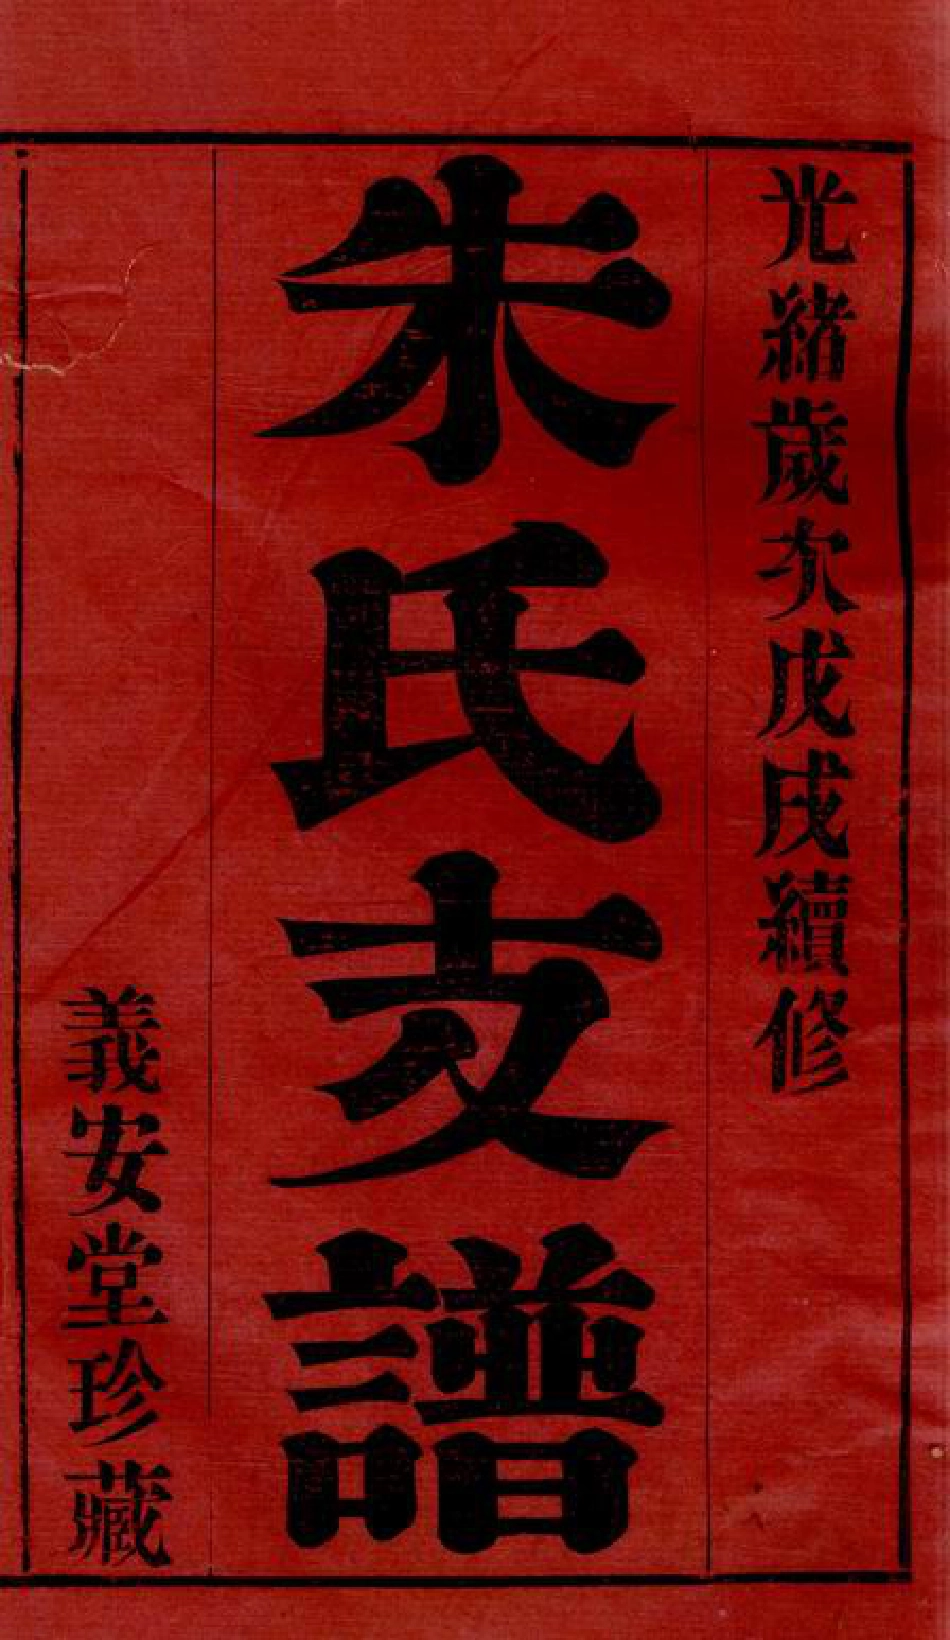 光緒歲次戊戌續修
朱氏支譜
義安堂珍藏